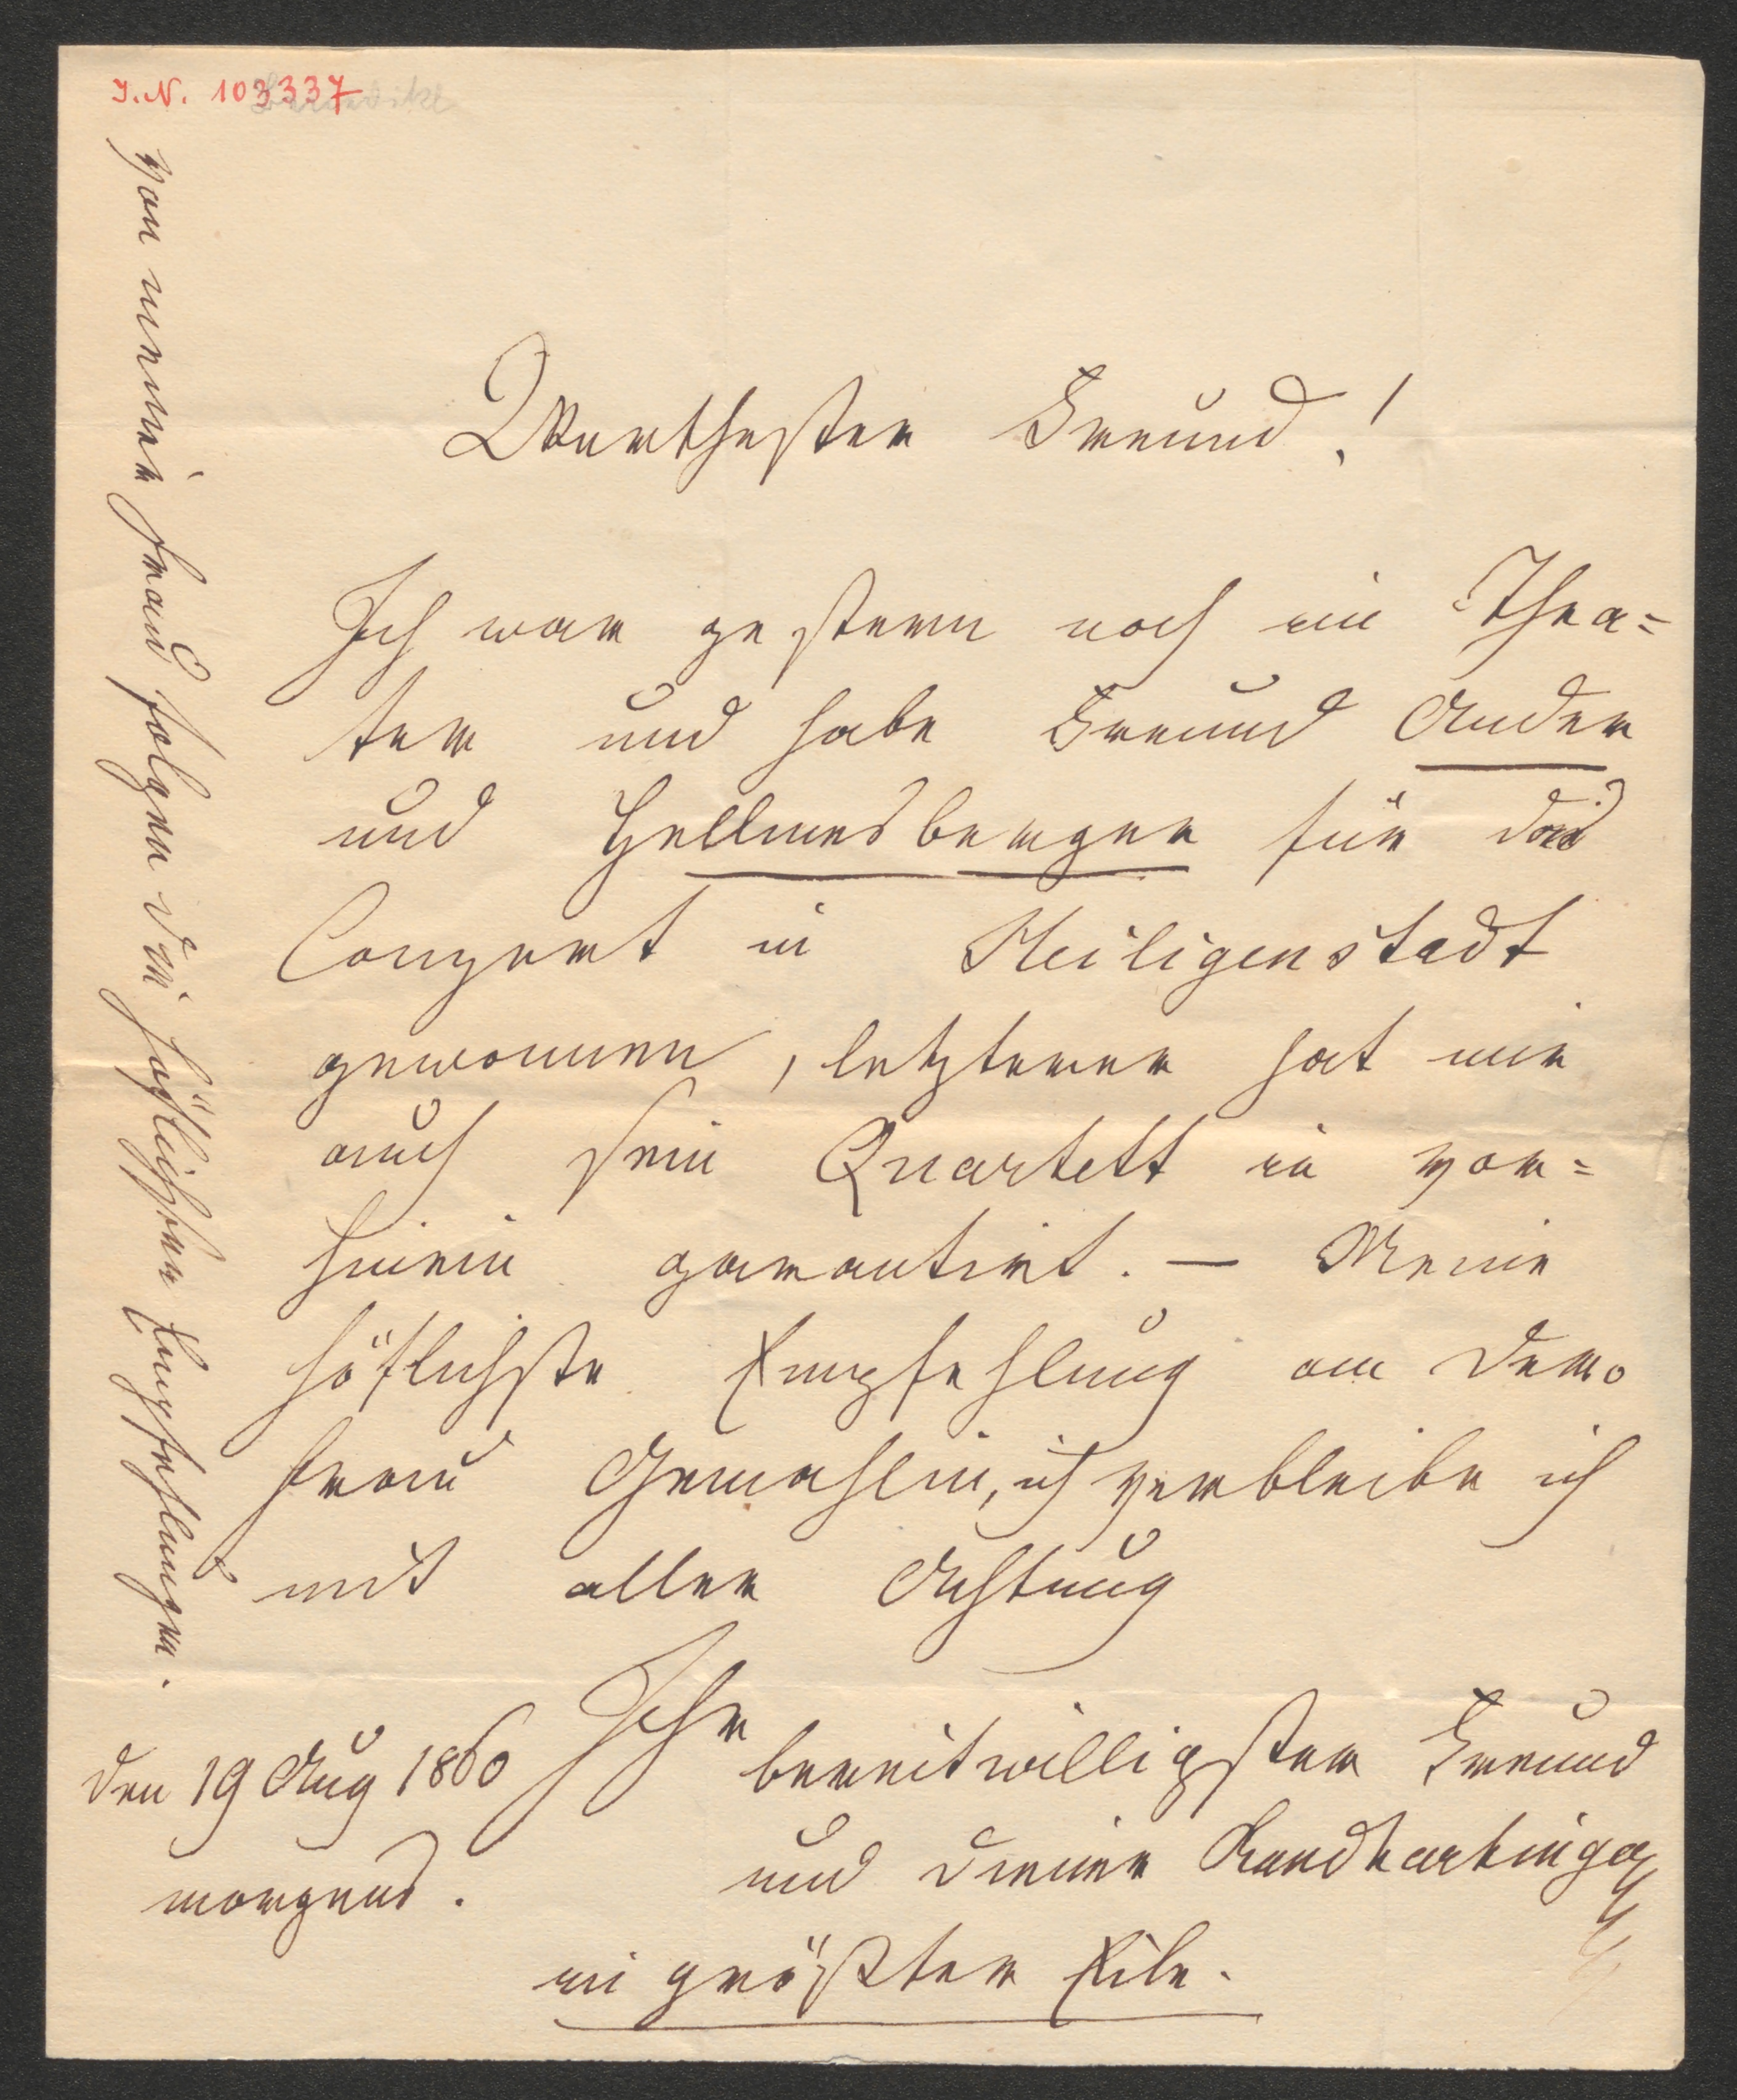 I.N. 103337
Benedikt
Werthester Freund!
Ich war gestern noch im Thea=
ter und habe Freund Ander
und Hellmesberger für das
Conzert in Heiligenstadt
gewonnen, letzterer hat mir
auch sein Quartett in vor=
hinein garantirt. — Meine
höflichste Empfehlung an dero
Frau Gemahlin, verbleibe ich
mit aller Achtung
Ihr
bereitwilligster Freund
und Diener Randhartinger
den 19 Aug 1860
morgens.
in größter Eile.
Von meiner Frau folgen die höflichsten Empfehlungen.